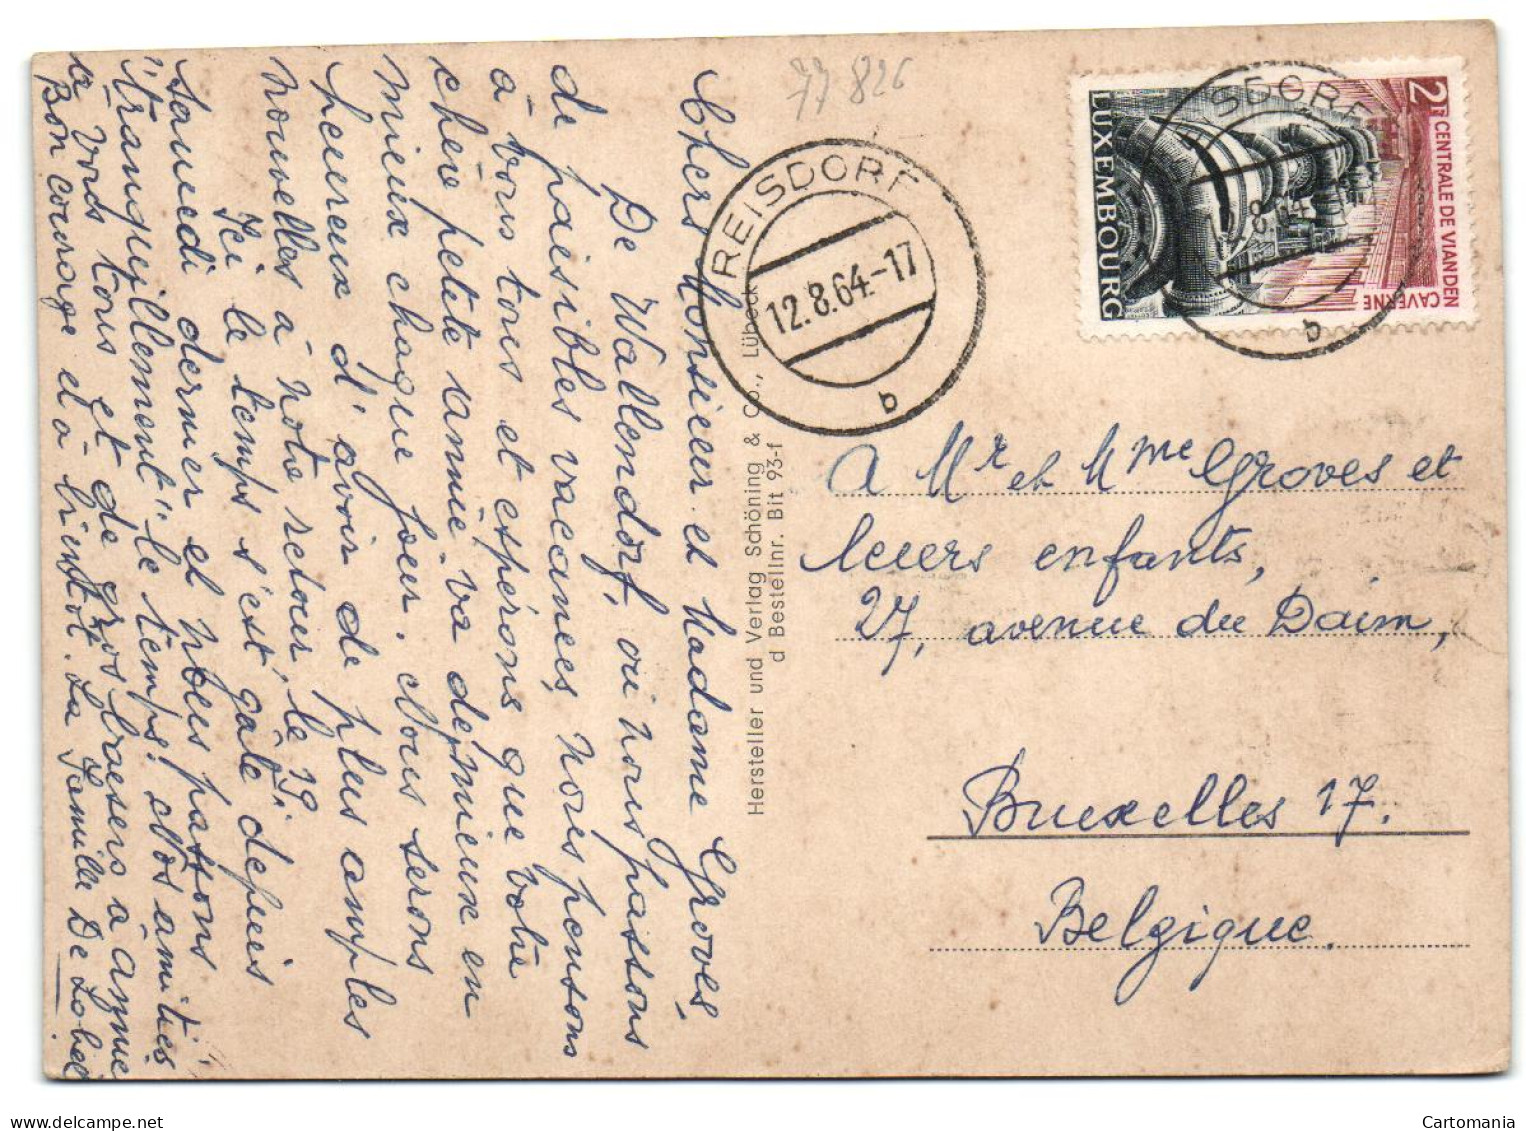 Chers Monsieur et Madame Groves,
De Wallendorf, où nous passons
de paisibles vacances, nous pensons
à vous tous et espérons que votre
chère petite année va de mieux en
mieux chaque jour. Nous serons
heureux d'avoir de plus amples
nouvelles à notre retour, le 19.
Ici le temps s'est gâté depuis
samedi dernier et nous passons
"tranquillement" le temps! Nos amitiés
à vous tous et de gros baisers à année
Bon courage et à bientôt. La Famille De Lobel
77 826
REISDORF
12.8.64-17
b
Hersteller und Verlag Schöning & Co., Lübeck
d Bestellnr. Bit 93-f
2F CENTRALE DE VIANDEN
CAVERNE
LUXEMBOURG
A Mr et Mme Groves et
leurs enfants,
27, avenue du Daim,
Bruxelles 17.
Belgique.
Cartomania